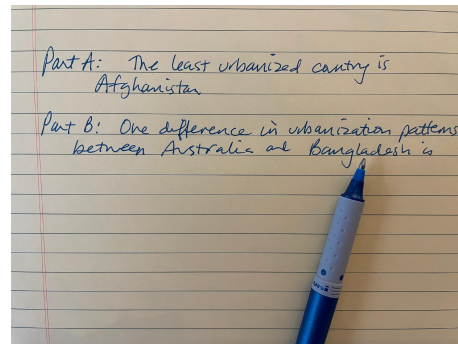 Part A: The least urbanized country is
Afghanistan
Part B: One difference in urbanization patterns
between Australia and Bangladesh is